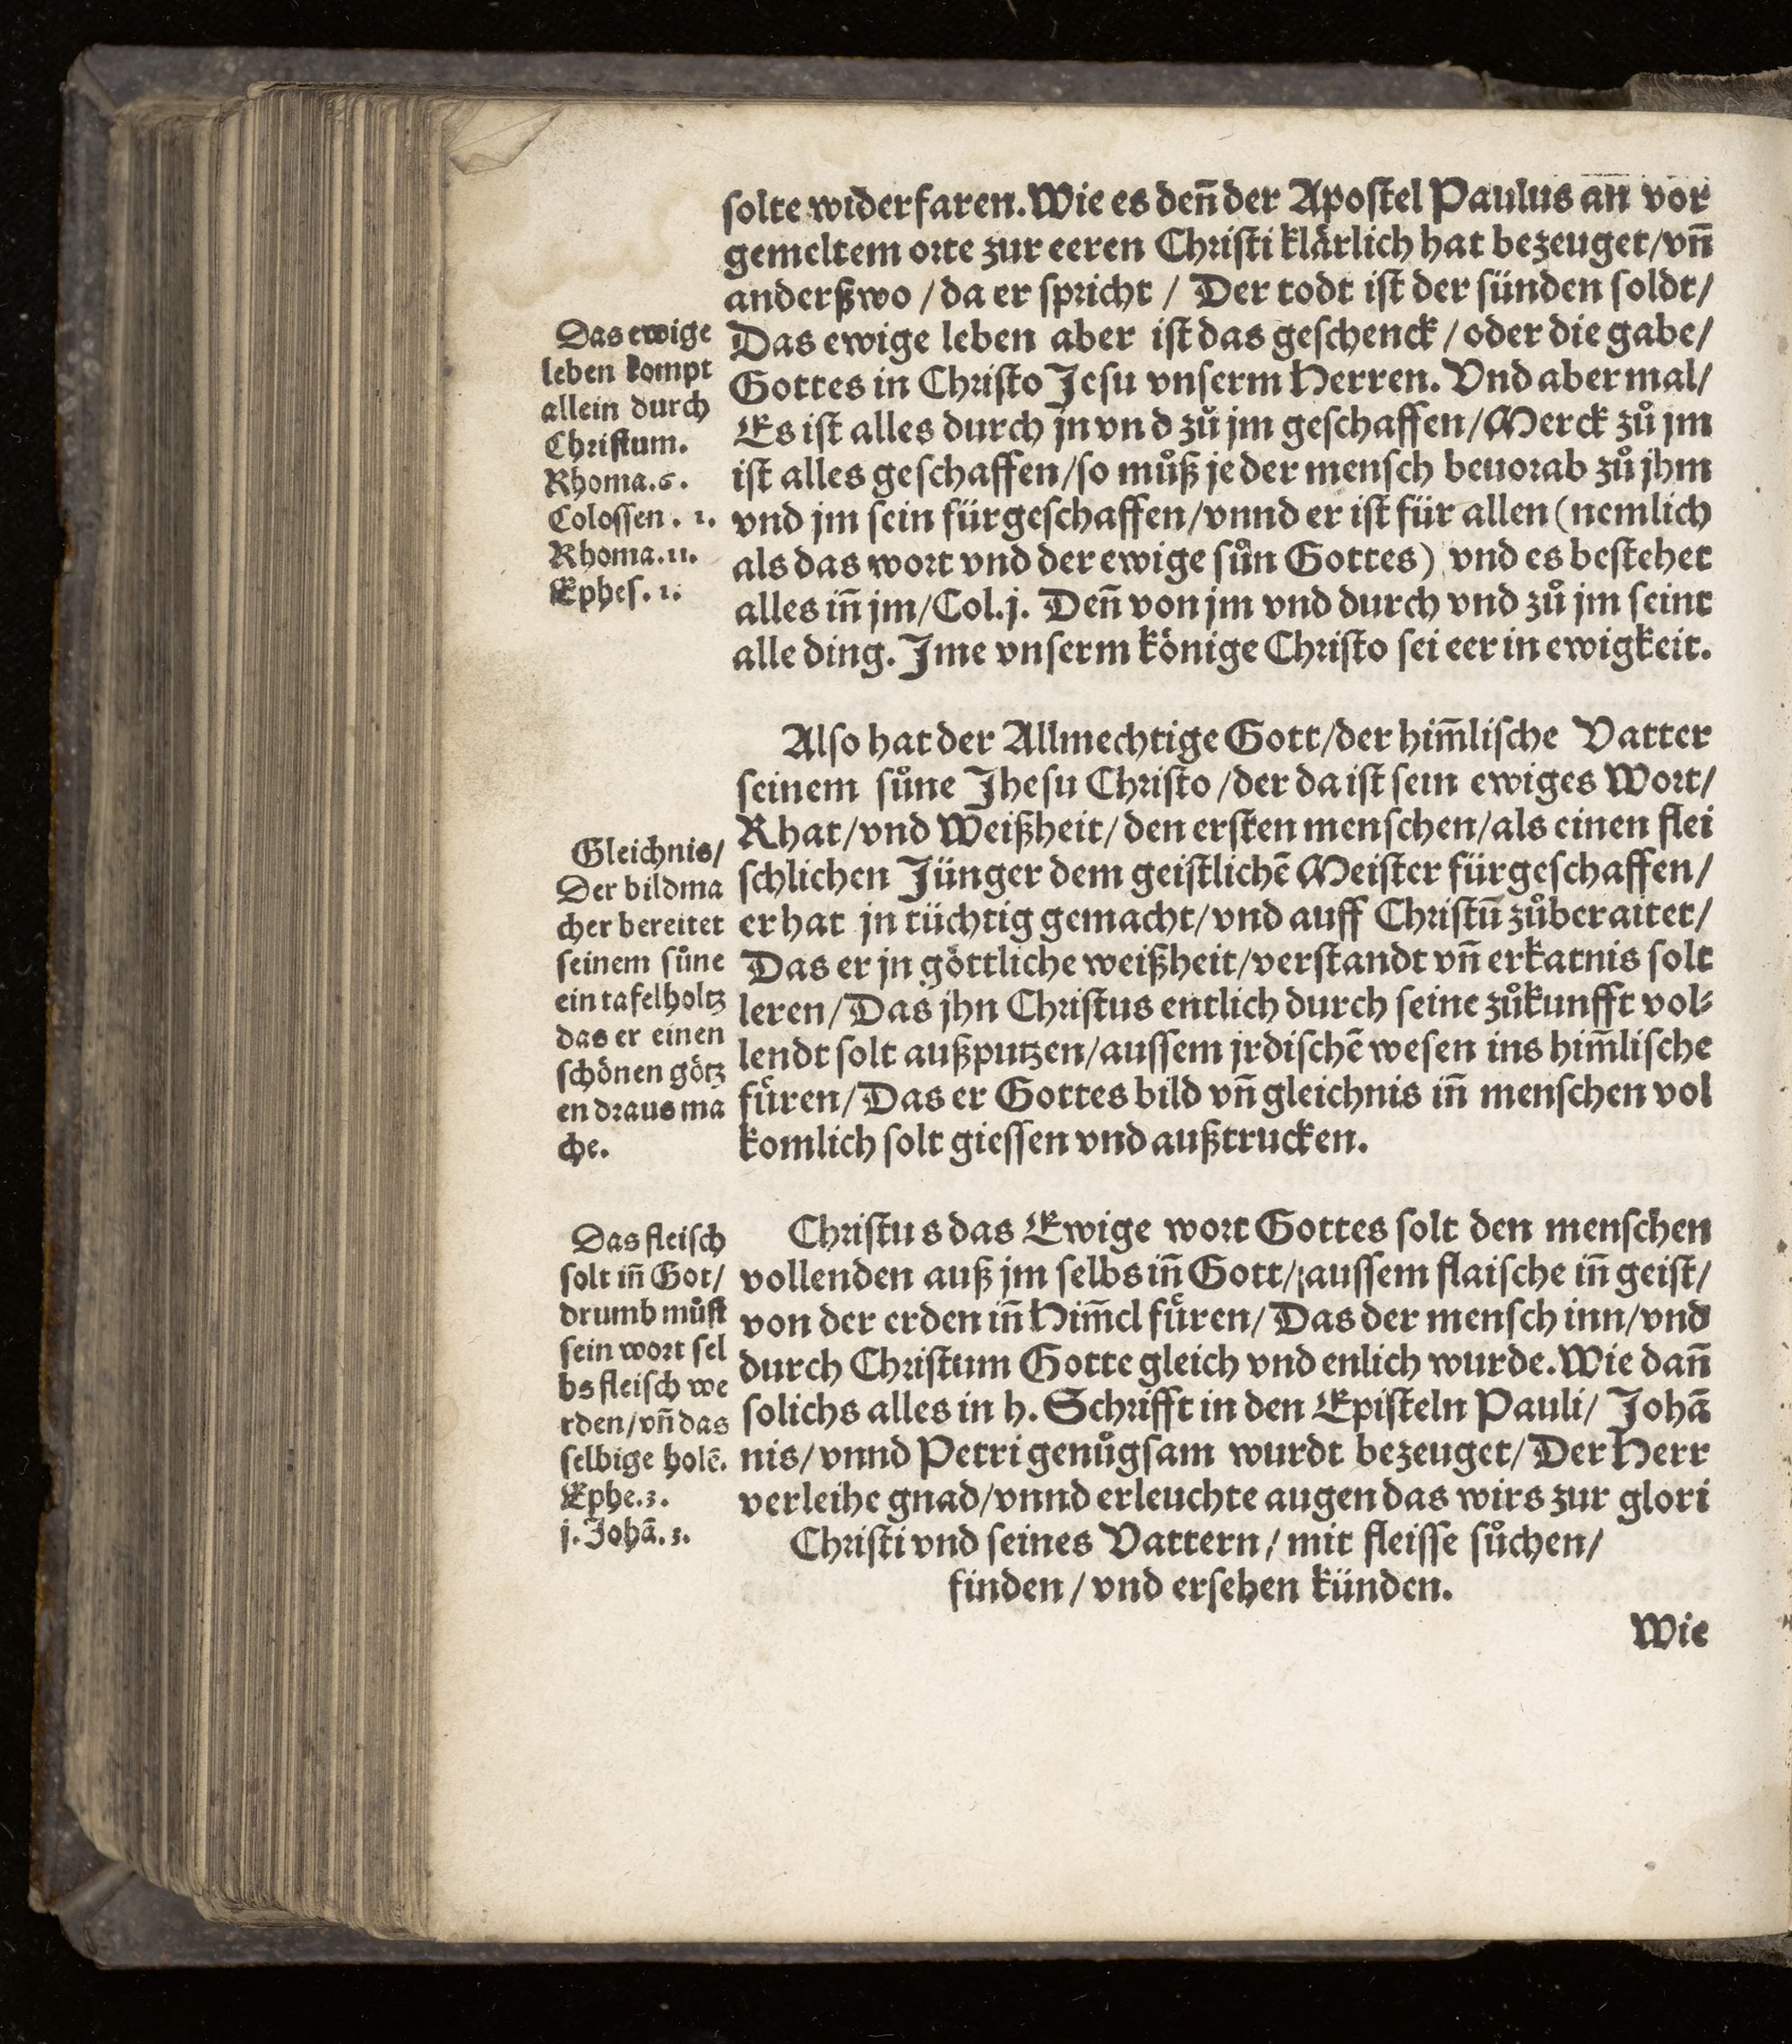 solte widerfaren. Wie es den̄ der Apostel Paulus an vor
gemeltem orte zur eeren Christi klårlich hat bezeuget/vn̄
anderßwo / da er spricht / Der todt ist der sünden soldt/
Das ewige leben aber ist das geschenck / oder die gabe/
Gottes in Christo Jesu vnserm Herren. Vnd aber mal/
Es ist alles durch jn vnd zů jm geschaffen/Merck zů jm
ist alles geschaffen/so můß jeder mensch beuorab zů jhm
vnd jm sein fürgeschaffen/vnnd er ist für allen (nemlich
als das wort vnd der ewige sůn Gottes) vnd es bestehet
alles in̄ jm/Col.j. Den̄ von jm vnd durch vnd zů jm seint
alle ding. Jme vnserm könige Christo sei eer in ewigkeit.
Das ewige
leben kompt
allein durch
Christum.
Rhoma.6.
Colossen. 1.
Rhoma.11.
Ephes. 1.
Also hat der Allmechtige Gott/der him̄lische Vatter
seinem sůne Jhesu Christo /der da ist sein ewiges Wort/
Rhat/vnd Weißheit/den ersten menschen/als einen flei
schlichen Jünger dem geistlichē Meister fürgeschaffen/
er hat jn tüchtig gemacht/vnd auff Christū zůberaitet/
Das er jn göttliche weißheit/verstandt vn̄ erkatnis solt
leren/Das jhn Christus entlich durch seine zůkunfft vol⸗
lendt solt außputzen/aussem jrdischē wesen ins him̄lische
fůren/Das er Gottes bild vn̄ gleichnis in̄ menschen vol
komlich solt giessen vnd außtrucken.
Gleichnis/
Der bildma
cher bereitet
seinem sůne
ein tafelholtz
das er einen
schönen götz
en draus ma
che.
Christus das Ewige wort Gottes solt den menschen
vollenden auß jm selbs in̄ Gott/aussem flaische in̄ geist/
von der erden in̄ Him̄el fůren/Das der mensch inn/vnd
durch Christum Gotte gleich vnd enlich wurde.Wie dan̄
solichs alles in h. Schrifft in den Episteln Pauli/ Johā
nis/vnnd Petri genůgsam wurdt bezeuget/Der Herr
verleihe gnad/vnnd erleuchte augen das wirs zur glori
Christi vnd seines Vattern / mit fleisse sůchen/
finden / vnd ersehen künden.
Das fleisch
solt in̄ Got/
drumb můst
sein wort sel
bs fleisch we
rden/vn̄ das
selbige holē.
Ephe.3.
j.Johā.3.
Wie